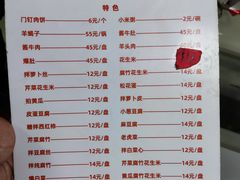 特色
门钉肉饼 6元/个 小米粥 2元/碗
羊蝎子 45元/锅 酱牛肚 45元/盘
酱牛肉 55元/盘 羊头肉 40元/盘
爆肚 35元/盘 花生米
拌萝卜丝 12元/盘 腐竹花生米 14元/盘
芹菜花生米 12元/盘 松花蛋 12元/盘
拍黄瓜 12元/盘 拌萝卜皮 12元/盘
皮蛋豆腐 12元/盘 小葱豆腐 12元/盘
糖拌西红柿 12元/盘 麻豆腐 14元/盘
芹菜腐竹 12元/盘 老虎菜 12元/盘
拌豆腐丝 12元/盘 拌白菜心 12元/盘
拌纯腐竹 14元/盘 芹菜腐竹花生米 14元/盘
14元/盘 白菜花生米 14元/盘